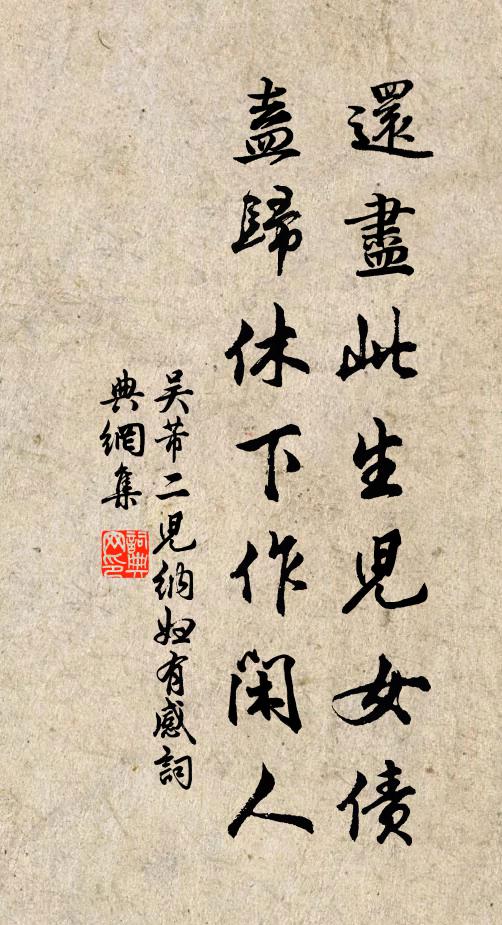 還盡此生兒女債
盍歸休下作閑人
吴芾二兒納婦有感詞
典網集
詞典網印